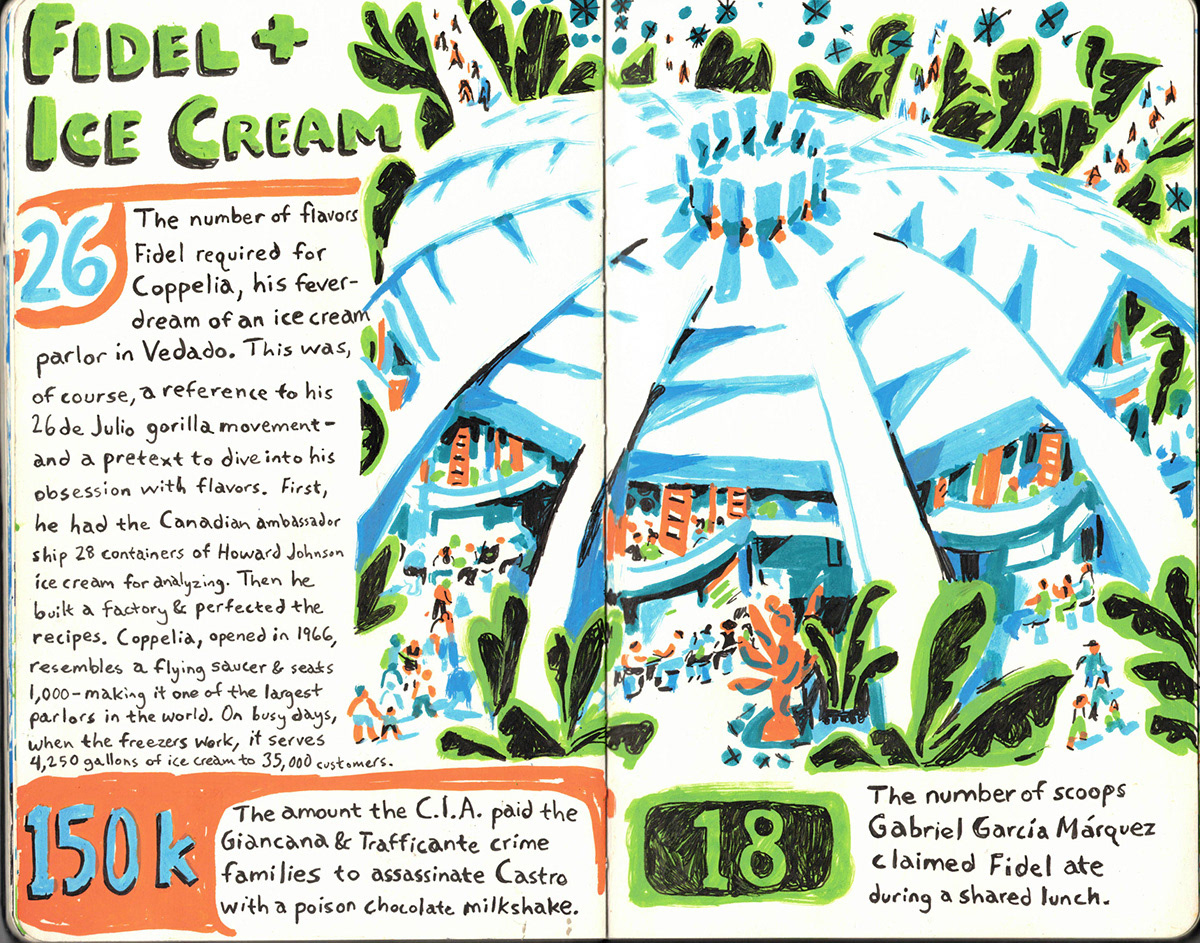 FIDEL +
ICE CREAM
26
The number of flavors
Fidel required for
Coppelia, his fever-
dream of an ice cream
parlor in Vedado. This was,
of course, a reference to his
26 de Julio gorilla movement-
and a pretext to dive into his
obsession with flavors. First,
he had the Canadian ambassador
ship 28 containers of Howard Johnson
ice cream for analyzing. Then he
built a factory & perfected the
recipes. Coppelia, opened in 1966,
resembles a flying saucer & seats
1,000-making it one of the largest
parlors in the world. On busy days,
when the freezers work, it serves
4,250 gallons of ice cream to 35,000 customers.
150k
The amount the C.I.A. paid the
Giancana & Trafficante crime
families to assassinate Castro
with a poison chocolate milkshake.
18
The number of scoops
Gabriel García Márquez
claimed Fidel ate
during a shared lunch.